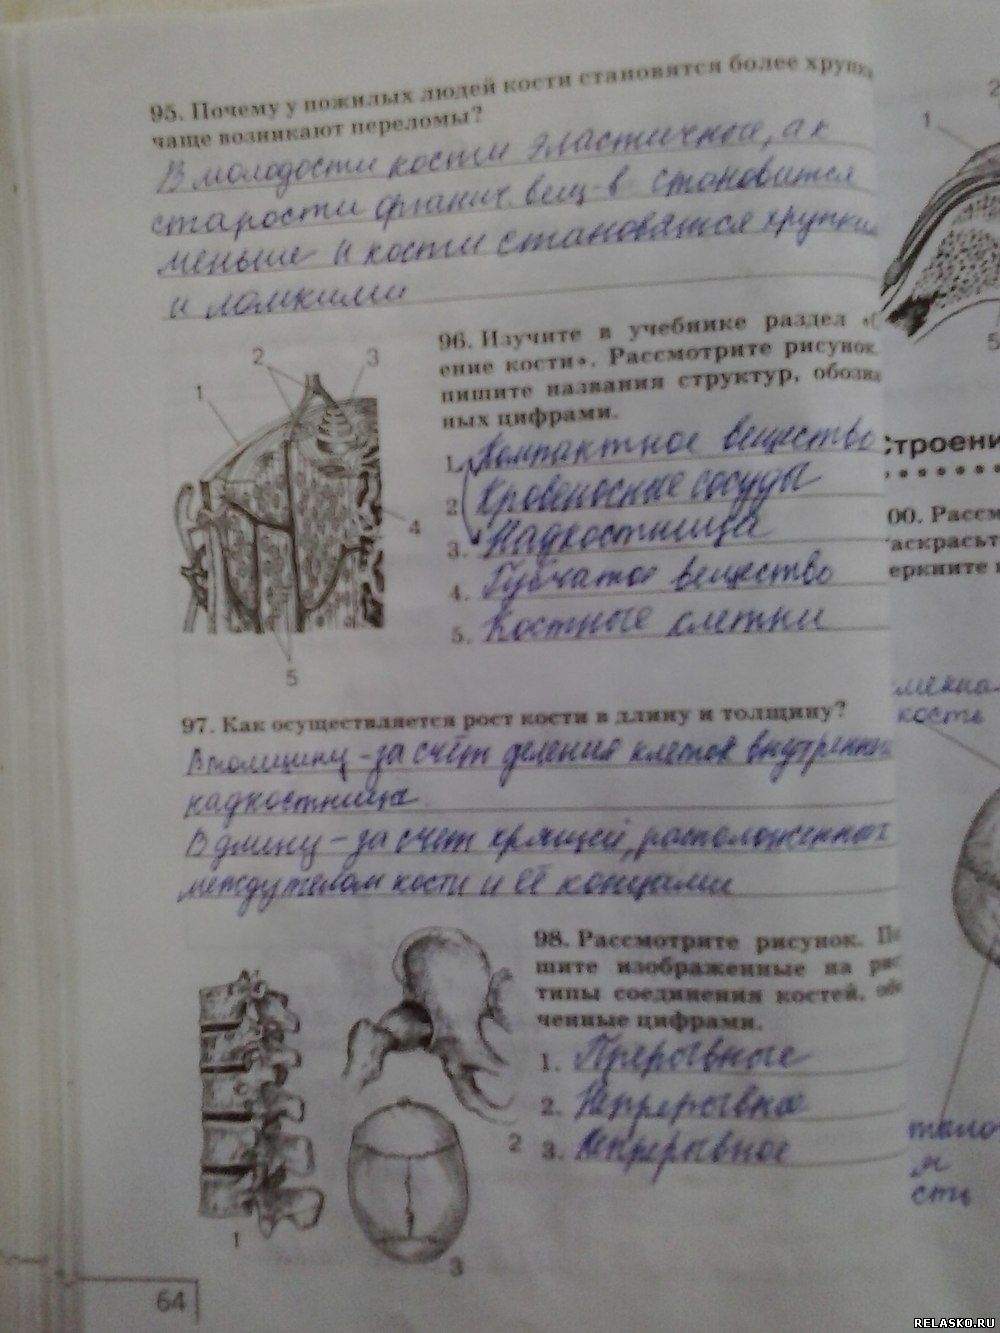 95. Почему у пожилых людей кости становятся более хрупки
чаще возникают переломы?
В молодости кости эластичные, а к
старости органич. вещ-в становится
меньше и кости становятся хрупким
и ломкими
96. Изучите в учебнике раздел «С
ение кости». Рассмотрите рисунок.
пишите названия структур, обозна
ных цифрами.
1. Компактное вещество
2. Кровеносные сосуды
3. Надкостница
4. Губчатое вещество
5. Костные клетки
1
2
3
4
5
97. Как осуществляется рост кости в длину и толщину?
В толщину - за счёт деления клеток внутренней
надкостницы.
В длину - за счет хрящей, расположенных
между телом кости и её концами
98. Рассмотрите рисунок. По
шите изображенные на рис
типы соединения костей, обо
ченные цифрами.
1. Прерывные
2. Непрерывное
3. Непрерывное
1
2
3
64
1
2
5
Строени
00. Рассм
аскрасьт
еркните н
кость
тело
я
сть
RELASKO.RU